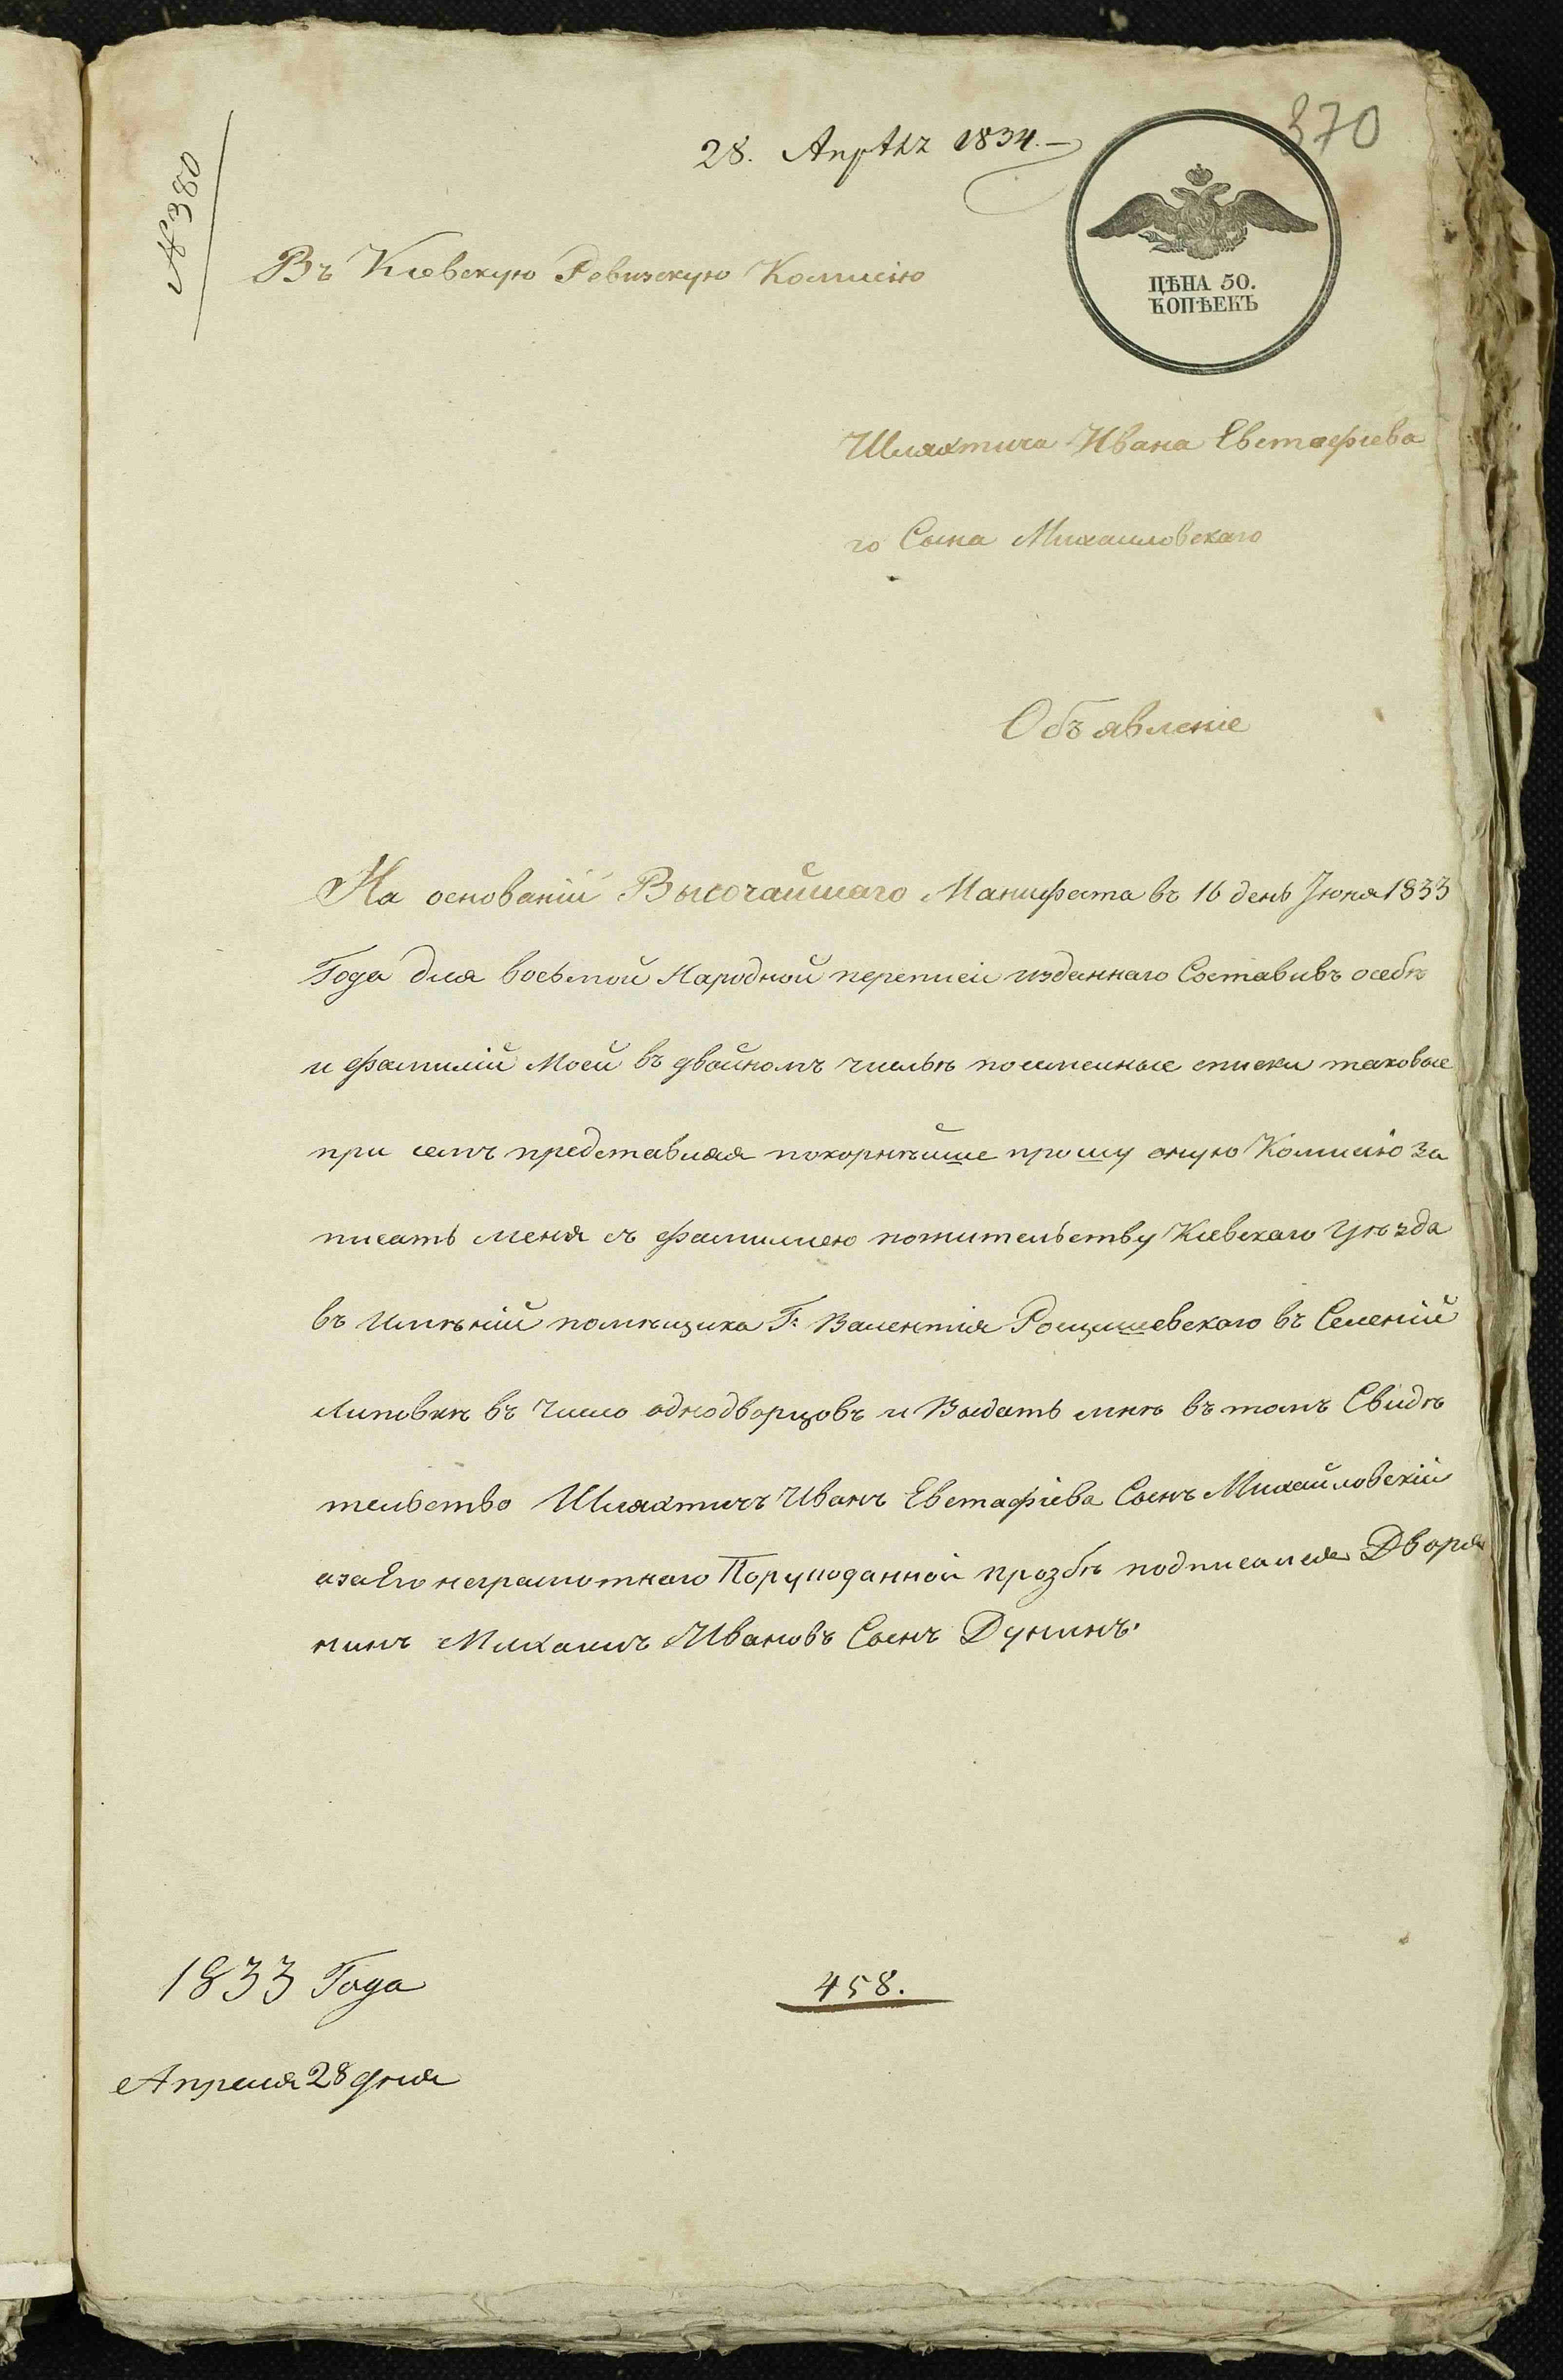 370
28. Апрѣлъ 1834.
№ 380
Въ Кіевскую Ревизскую Комисію
ЦѢНА 50.
КОПѢЕКЪ
Шляхтича Ивана Евстафіева
го Сына Михаиловскаго
Объявленіе
На основаніи Высочайшаго Манифеста въ 16 день Іюня 1833
Года для восьмой Народной переписи изданнаго Составивъ осебѣ
и фамиліи Моей въ двойномъ числѣ поименные списки таковые
при семъ представляя покорнѣйше прошу оную Комисію за
писать меня съ фамилиею пожительству Кіевскаго Уѣзда
въ имѣніи помѣщика Г: Валентія Росцишевскаго въ Селеніи
Липовкѣ въ Число однодворцовъ и Выдать мнѣ въ томъ Свидѣ
тельство Шляхтичъ Иванъ Евстафіева Сынъ Михайловскій
азаЕго неграмотнаго Поруподанной прозбѣ подписался Дворя
нинъ Михаилъ Ивановъ Сынъ Дунинъ.
1833 Года
458.
Апреля 28 дня